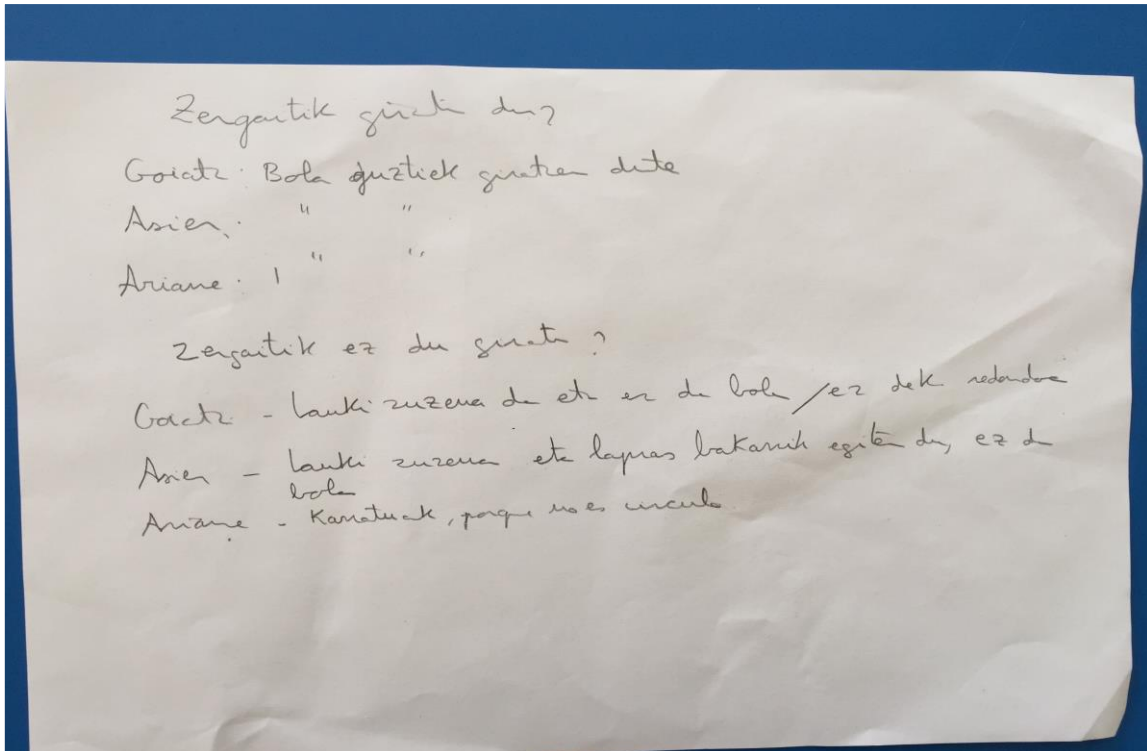 Zergaitik giratu du?
Goiatz: Bola guztiek giratzen dute
Asier: " "
Ariane: " "
Zergaitik ez du giratu?
Goiatz - Lauki zuzena da eta ez da bola / ez dek redondoa
Asier - Lauki zuzena eta lapras bakarrik egiten du, ez da
bola
Ariane - Karratuak, porque no es circulo